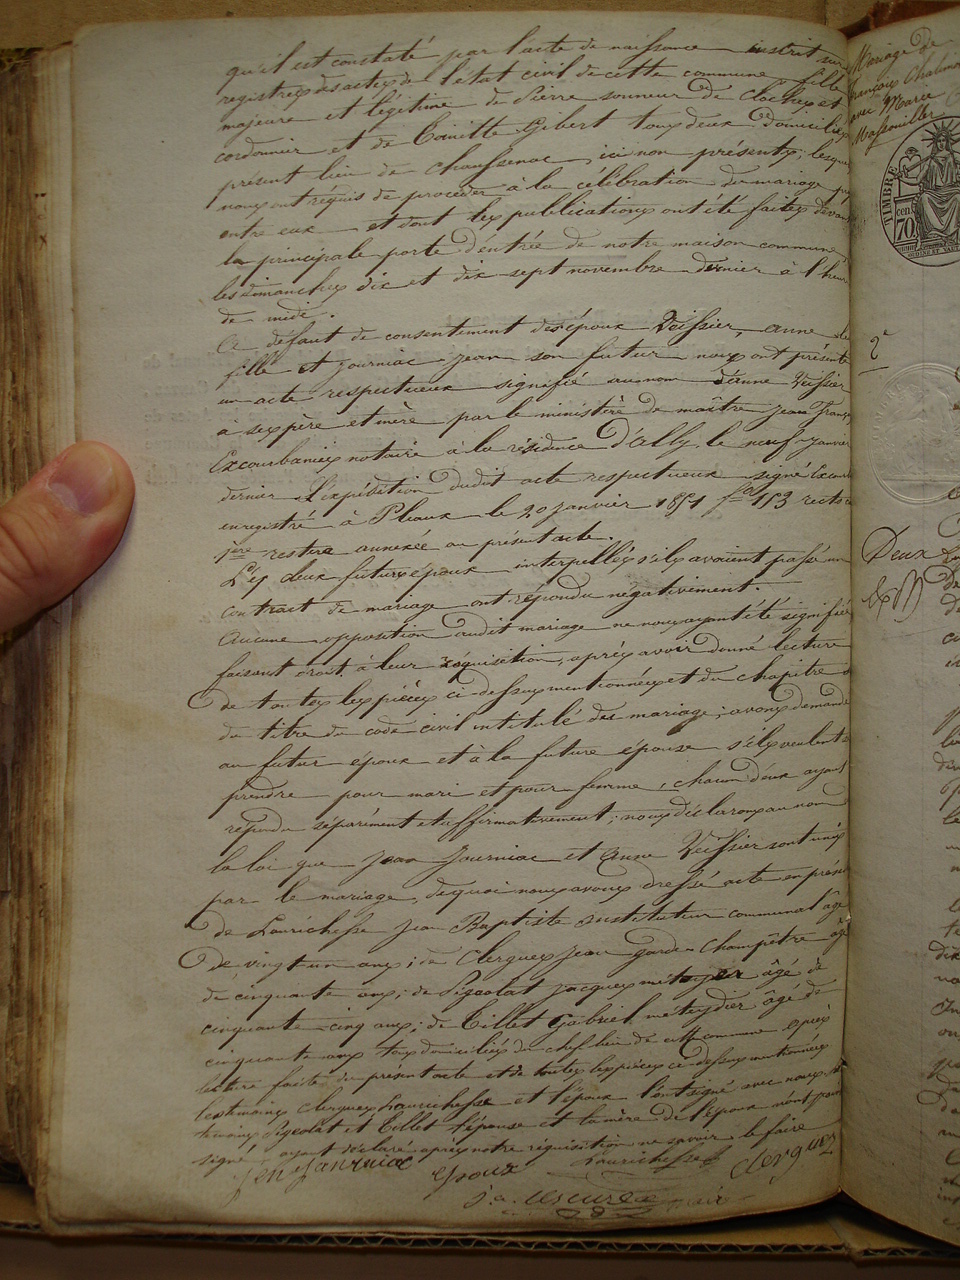 qu'il est constaté par l'acte de naissance inscrit sur
registres des actes de l'état civil de cette commune, fille
majeure et légitime de Pierre sonneur de cloches et
cordonnier et de Gibert tous deux domiciliés
présent lieu de Chaussenac, ici non présents; lesquels
nous ont réquis de procéder à la célébration du mariage
entre eux et dont les publications ont été faites devant
la principale porte d'entrée de notre maison commune
les dimanches dix et dix sept novembre dernier à l'heure
de midi.
A défaut de consentement des époux Veissier, anne
fille et Journiac Jean son futur nous ont présenté
un acte respectueux signifié au nom d'anne Veissier
à ses père et mère par le ministère de maître Jean françois
Escourbanies notaire à la résidence d'ally, le neuf janvier
dernier. L'expédition dudit acte respectueux signé
enregistré à Pleaux le 20 janvier 1851 f° 153 recto
1ère restera annexée au présent acte.
Les deux futurs époux interpellés s'ils avaient passé un
contrat de mariage ont répondu négativement.
Aucune opposition audit mariage ne nous ayant été signifiée
faisant droit à leur réquisition, après avoir donné lecture
de toutes les pièces ci-dessus mentionnées et du chapitre
du titre du code civil intitulé des mariage; avons demandé
au futur époux et à la future épouse s'ils veulent se
prendre pour mari et pour femme, chacun d'eux ayant
répondu séparément et affirmativement; nous déclarons au nom
la loi que Jean Journiac et Anne Veissier sont unis
par le mariage, de quoi nous avons dressé acte en présence
de Laurichesse Jean Baptiste instituteur communal âgé
de vingt un ans; de Clergues Jean garde Champêtre âgé
de cinquante ans; de Pigeolat Jacques métayer âgé de
cinquante-cinq ans; de Tillet Gabriel meteydier âgé de
cinquante ans tous domiciliés du chef lieu de cette commune après
lecture faite du présent acte et de toutes les pièces ci-dessus mentionnées
les témoins Clergues Laurichesse et l'époux l'ont signé avec nous,
témoins Pigeolat et Tillet l'épouse et la mère de l'époux n'ont point
signé ayant déclaré après notre réquisition ne savoir le faire
Jen Janrniac epoux Laurichesse clergues
maire
Mariage de
françois Chalmon
avec Marie
TIMBRE
70
2e
Deux